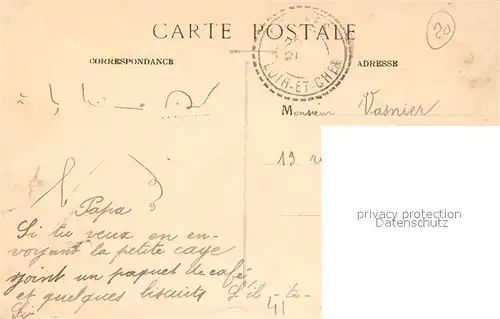 CARTE POSTALE
20
CORRESPONDANCE
ADRESSE
20
21
LOIR-ET-CHER
Monsieur Vasnier
19
Papa
Si tu veux en en-
voyant la petite cage
joint un paquet de café
et quelques biscuits S'il - to-
41
privacy protection
www.delcampe.net